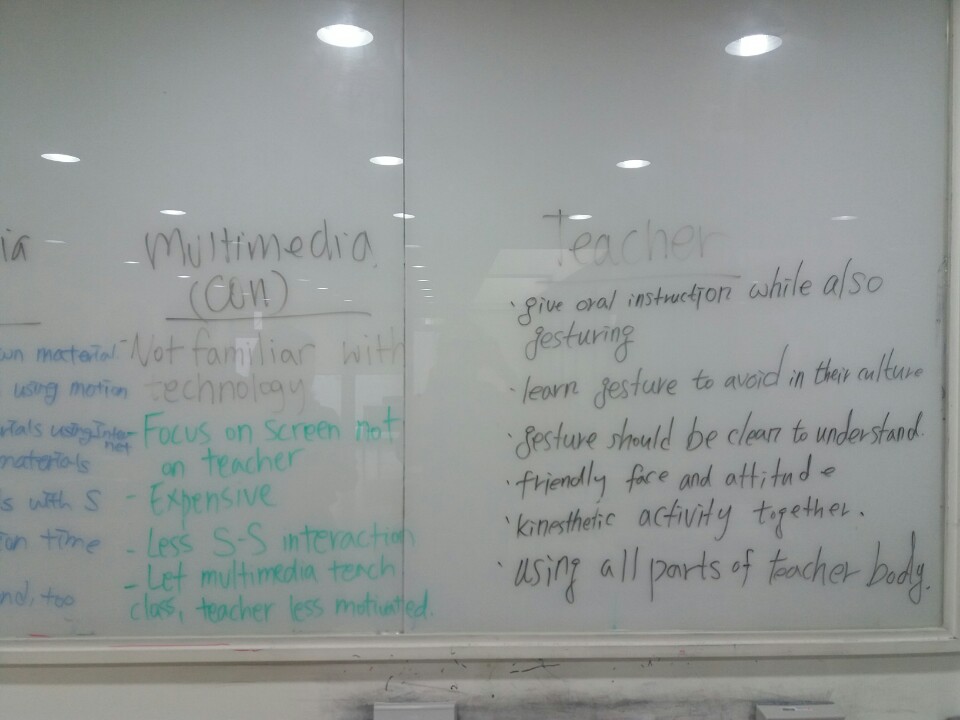 ia
wn material
using motion
rials using Inter-
net
materials
s with S
ion time
nd, too
Multimedia
(con)
- Not familiar with
technology
- Focus on screen not
on teacher
- Expensive
- Less S-S interaction
- Let multimedia teach
class, teacher less motivated.
Teacher
· give oral instruction while also
gesturing
· learn gesture to avoid in their culture
· gesture should be clear to understand.
· friendly face and attitude
· kinesthetic activity together.
· using all parts of teacher body.